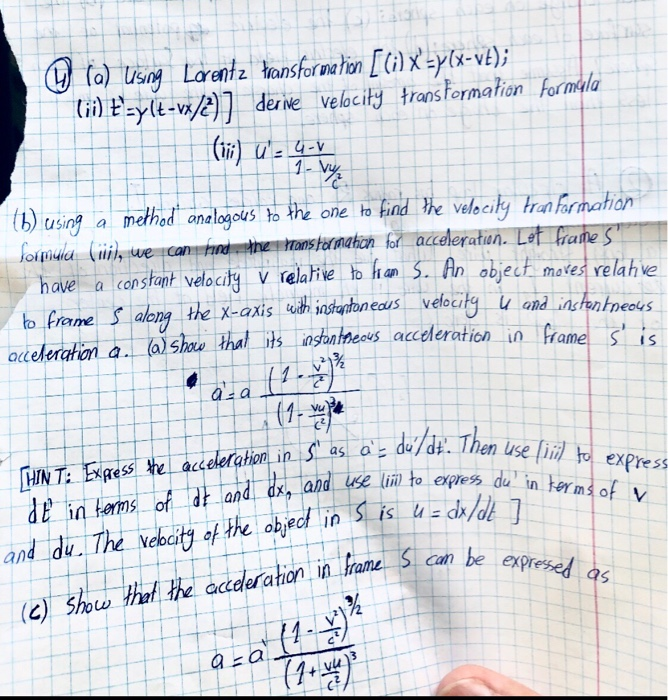 ④ (a) Using Lorentz transformation [(i) x'=γ(x-vt);
(ii) t'=γ(t-vx/c²)] derive velocity transformation formula
(iii) u' = u-v / 1-vu/c²
(b) using a method analogous to the one to find the velocity tranformation
formula (iii), we can find the transformation for acceleration. Let frame S'
have a constant velocity v relative to fram S. An object moves relative
to frame S along the x-axis with instantoneous velocity u and instantneous
acceleration a. (a) show that its instantneous acceleration in frame S' is
a'=a (1-v²/c²)^3/2 / (1-vu/c²)³
[HINT: Express the acceleration in S' as a'= du'/dt'. Then use (iii) to express
dt' in terms of dt and dx, and use (iii) to express du' in terms of v
and du. The velocity of the object in S is u = dx/dt ]
(c) Show that the acceleration in frame S can be expressed as
a=a' (1-v²/c²)^3/2 / (1+vu/c²)³